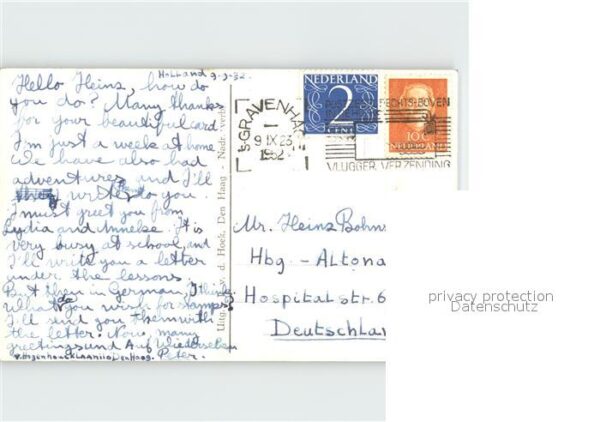 Holland 9-9-52.
Hello Heinz, how do
you do? Many thanks
for your beautiful card
I'm just a week at home
We have also had
adventures and I'll
write to you.
I must greet you from
Lydia and Annelse. It is
very busy at school, and
I'll write you a letter
under the lessons
But then in German, I think.
What do you wish for stamps?
I'll send you them with
the letter. Now, many
greetings und Auf Wiedersehen
Peter.
v. Hogenhoucklaan Den Haag.
Uitg. J. v. d. Hoek, Den Haag - Nadr. verb.
NEDERLAND
2
CENT
10c
NEDERLAND
'S-GRAVENHAGE
9 IX 23
1952
POSTZEGEL RECHTS-BOVEN
VLUGGER VERZENDING
Mr. Heinz Bohm
Hbg - Altona
Hospitalstr. 6
Deutschland
privacy protection
Datenschutz